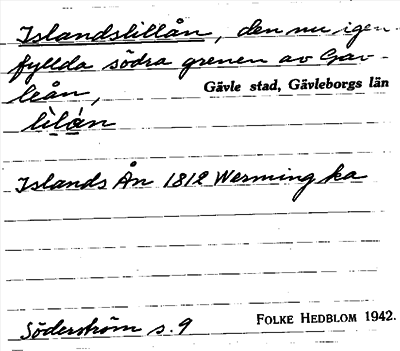 Islandslillån, den nu igen-
fyllda södra grenen av Gav-
leån,
Gävle stad, Gävleborgs län
lilån
Islands Ån 1812 Werming ka
Söderström s. 9
FOLKE HEDBLOM 1942.